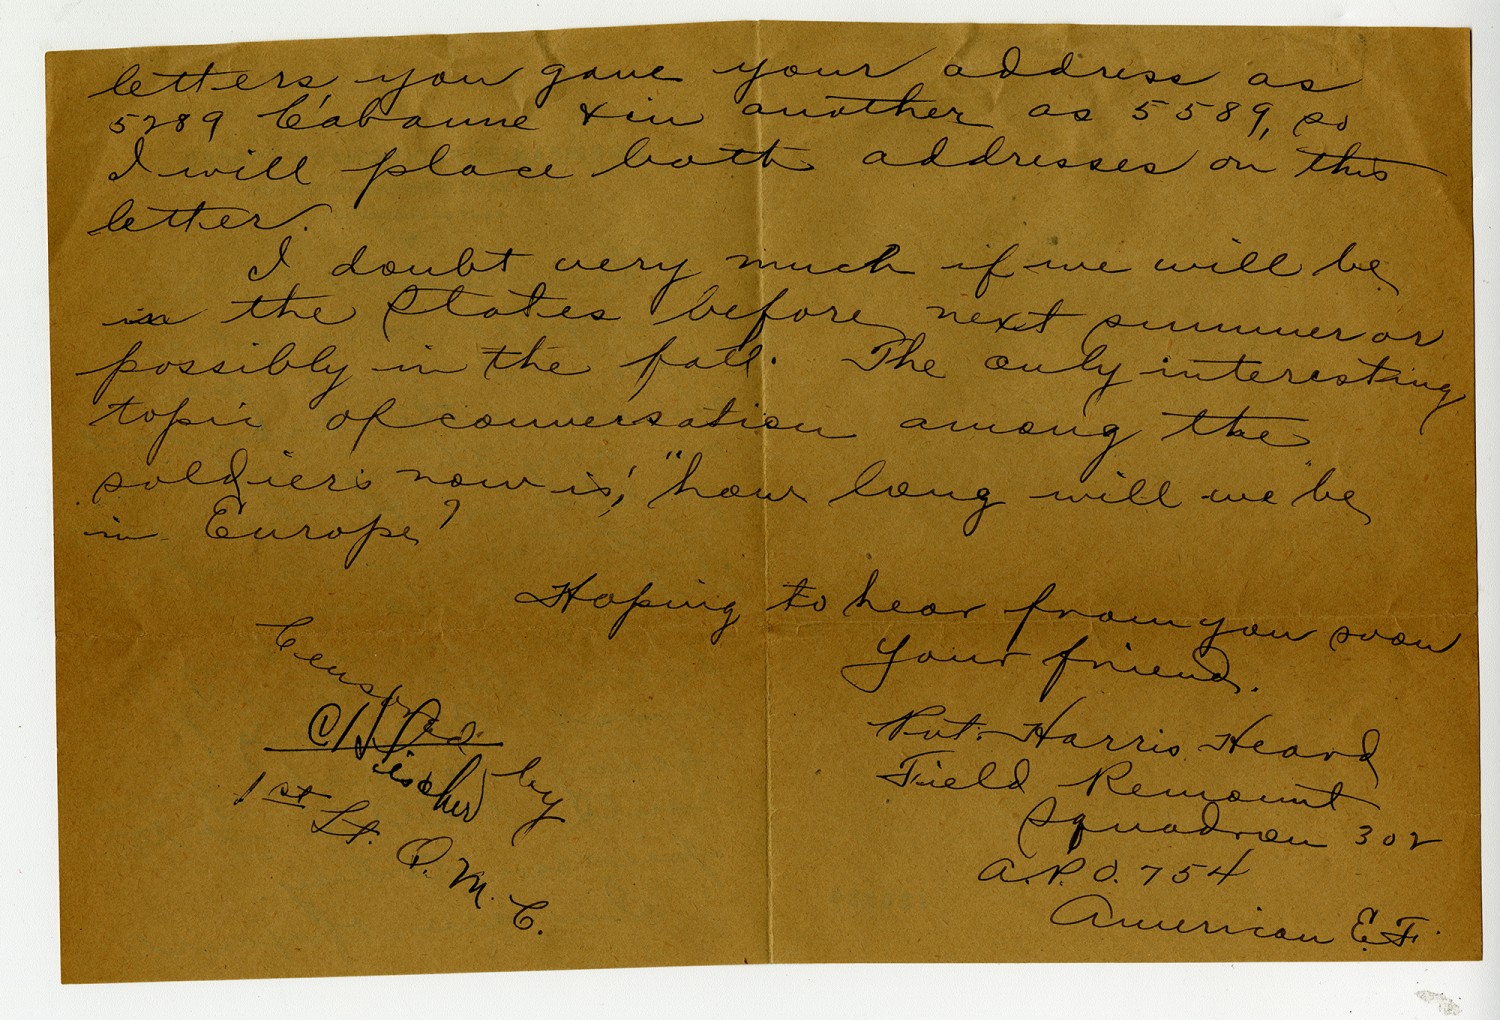 letters you gave your address as
5289 Cabanne & in another as 5589, so
I will place both addresses on this
letter.
I doubt very much if we will be
in the States before next summer or
possibly in the fall. The only interesting
topic of conversation among the
soldiers now is, "how long will we be
in Europe?"
Hoping to hear from you soon
Your friend.
Pvt. Harris Heard
Field Remount
Squadron 302
A.P.O. 754
American E.F.
Censored by
Fischer
1st Lt. Q.M.C.